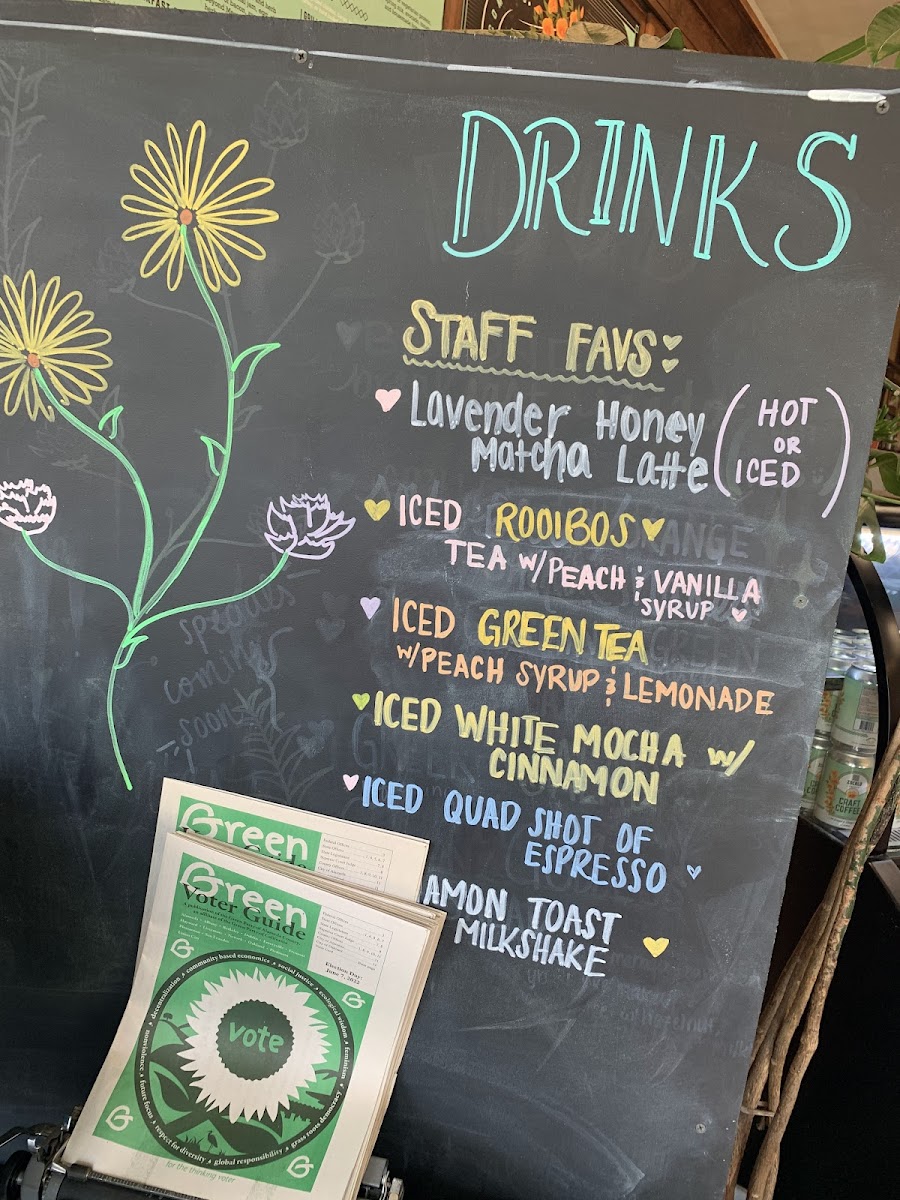 DRINKS
STAFF FAVS:
Lavender Honey
Matcha Latte
(HOT
OR
ICED)
ICED ROOIBOS
TEA W/PEACH & VANILLA
SYRUP
ICED GREEN TEA
W/PEACH SYRUP & LEMONADE
ICED WHITE MOCHA W/
CINNAMON
ICED QUAD SHOT OF
ESPRESSO
AMON TOAST
MILKSHAKE
specials
coming
soon
ORANGE
GREEN
Green
Green
Voter Guide
Election Day:
June 7, 2022
decentralization • community based economics • social justice • ecological wisdom • feminism
nonviolence • future focus • respect for diversity • global responsibility • grass roots democracy
vote
for the thinking voter
CRAFT
COFFEE